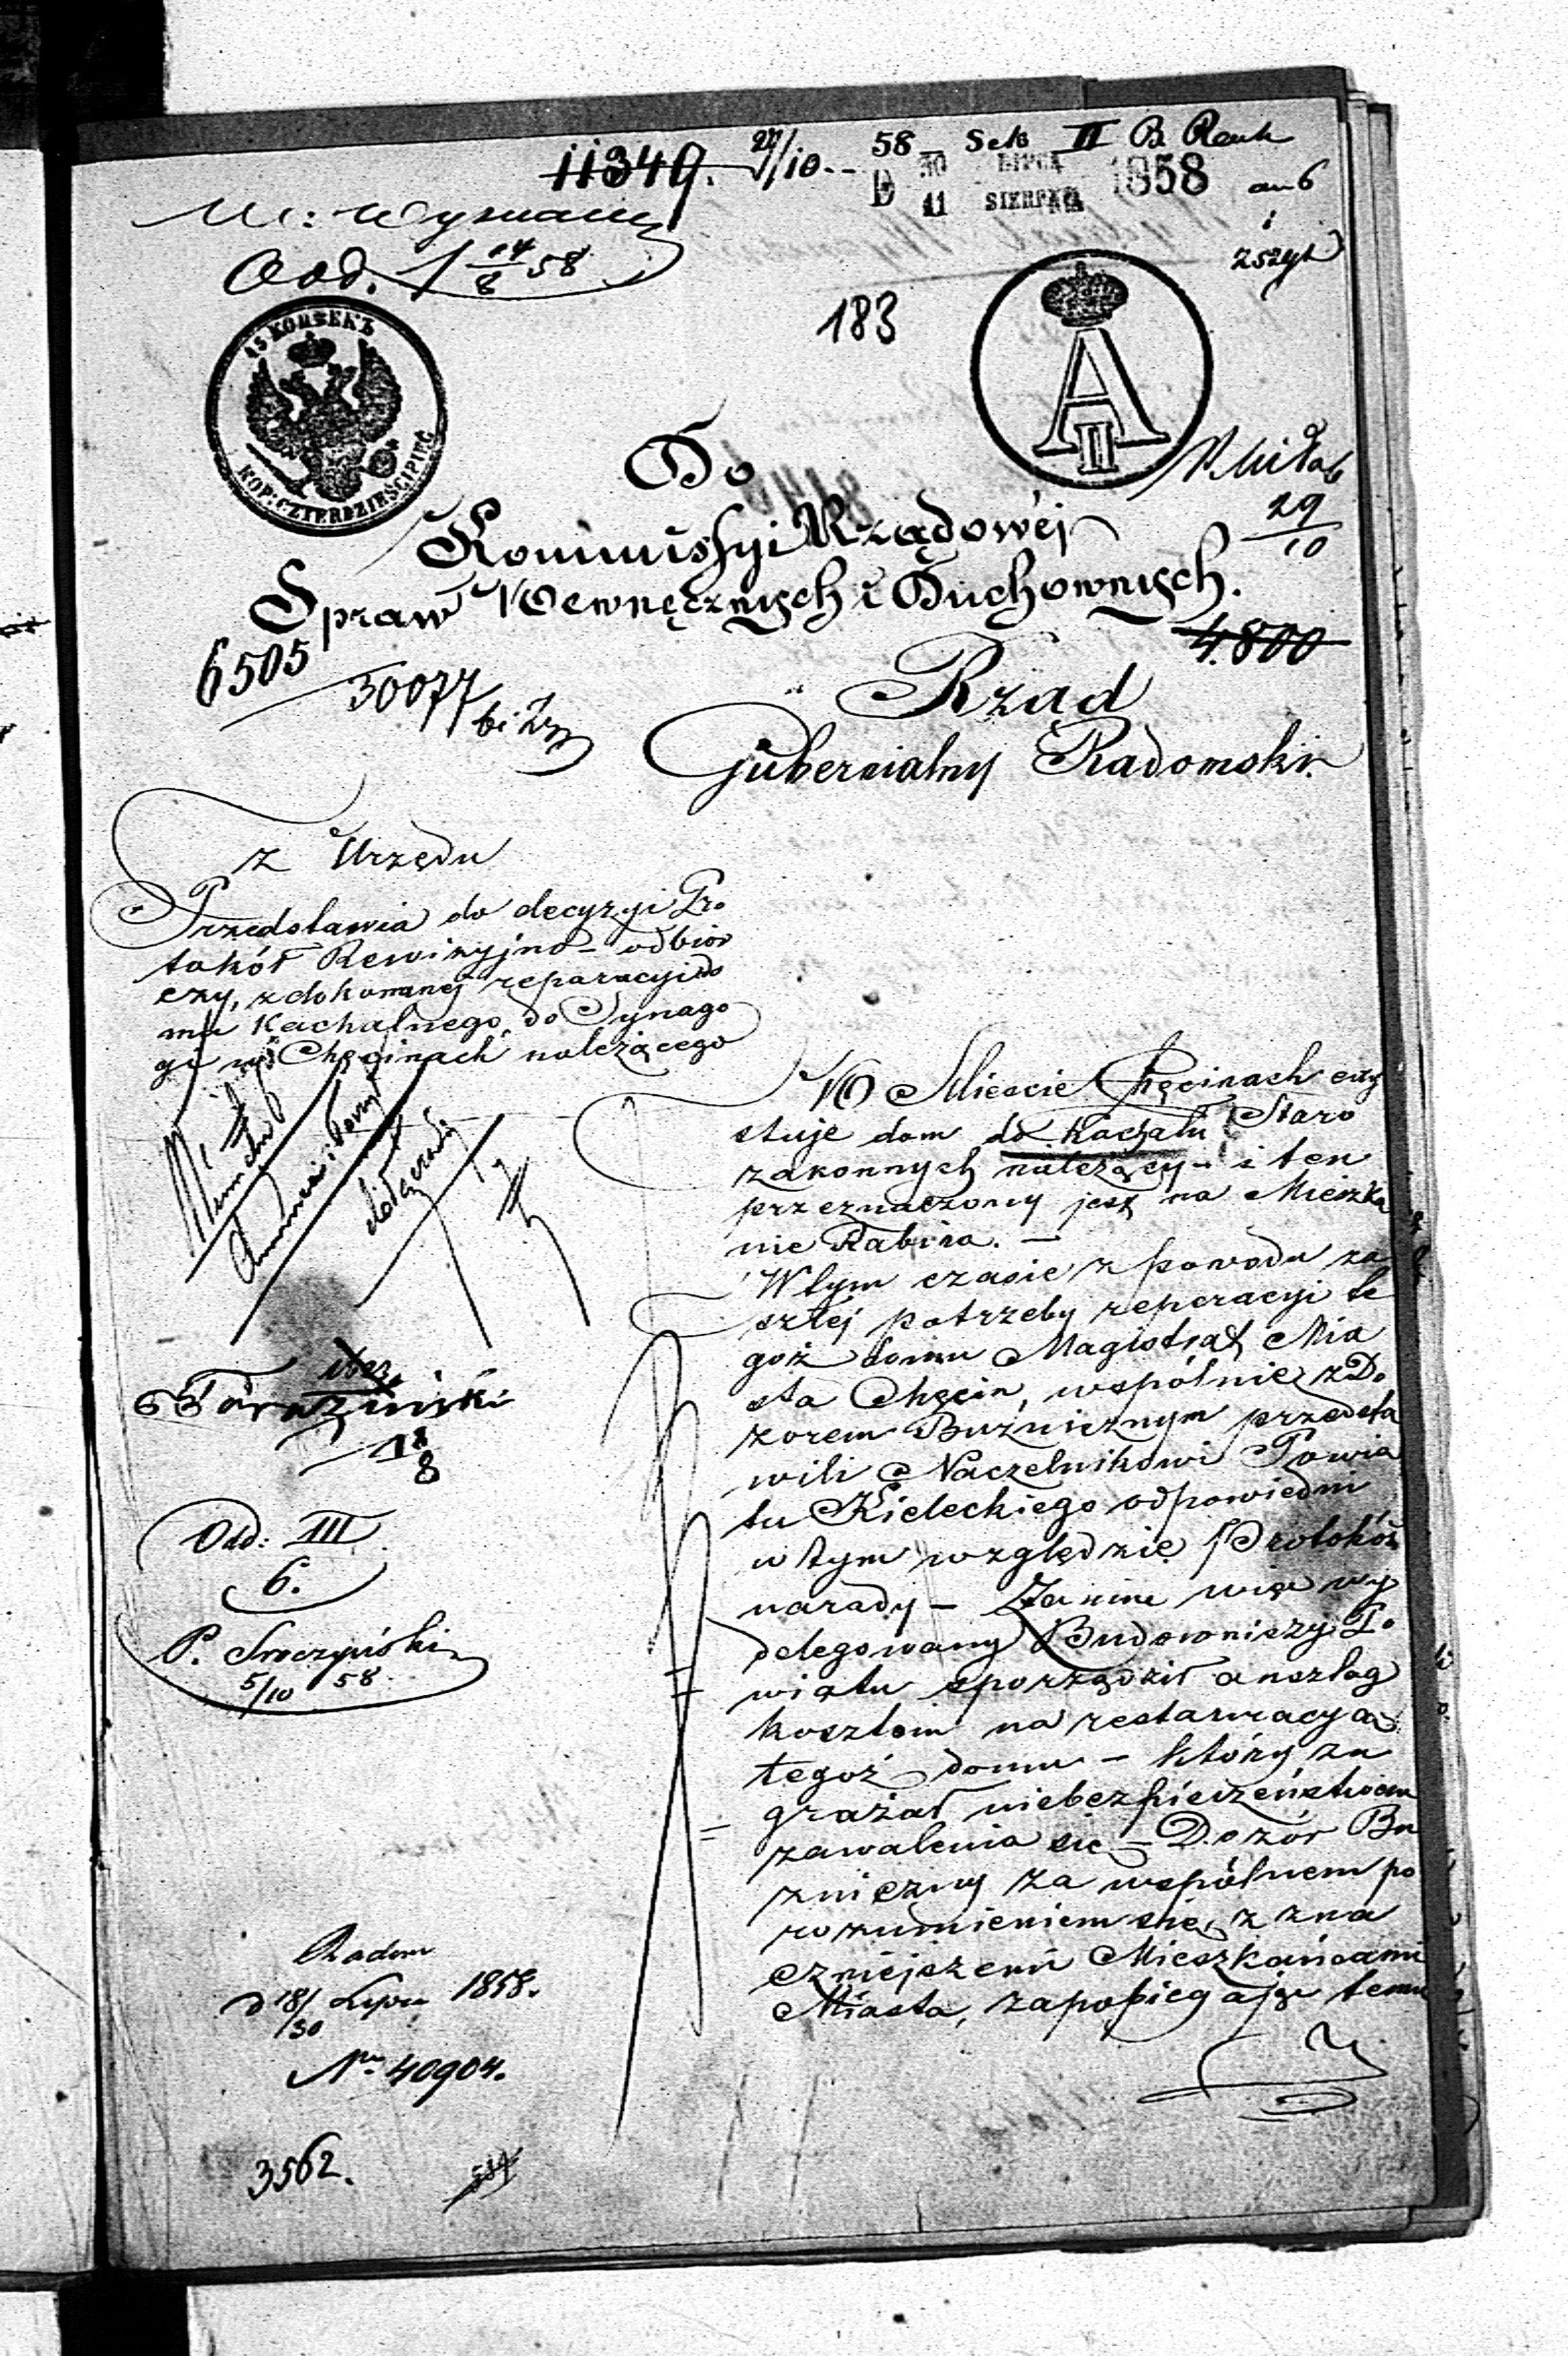 11349. 27/10 - 58 - Sek II B Rach
D 30 LIPCA 1858
11 SIERPNIA
an 6
i
zszyt
W: Wyznań
Odd. 1 14/8 58
183
45 КОПѢЕКЪ
KOP: CZTERDZIEŚCI PIĘĆ
A II
29/10
Do
Kommissyi Rządowéj
Spraw Wewnęcznych i Duchownych.
4800
6505
30077
Rząd
Gubernialny Radomski.
Z Urzędu
Przedstawia do decyzyi Pro
tokół Rewizyjno-odbior
czy, z dokonanej reparacyi do
mu Kachalnego, do Synago
gi w Chęcinach należącego
W Mieście Chęcinach egzy
stuje dom do Kachału Staro
zakonnych należący - i ten
przeznaczony jest na Mieszka
nie Rabina. -
W tym czasie z powodu za
szłéj potrzeby reperacyi te
goż domu Magistrat Mia
sta Chęcin, wspólnie z Do
zorem Bużnicznym przedsta
wili Naczelnikowi Powia
tu Kieleckiego odpowiedni
w tym względzie Protokół
narady - Zanim więc wy
delegowany Budowniczy Po
wiatu sporządził anszlag
kosztom na restauracyą
tegoż domu - który za
grażał niebezpieczeństwem
zawalenia się - Dozór Bu
żniczny za wspólnem po
rozumieniem się, z zna
czniejszemi Mieszkańcami
Miasta, zapobiegając temu
18/8
Odd: III
6.
P. Smoczyński
5/10 58.
Radom
d 18/30 Lipca 1858.
Nr 40904.
3562.